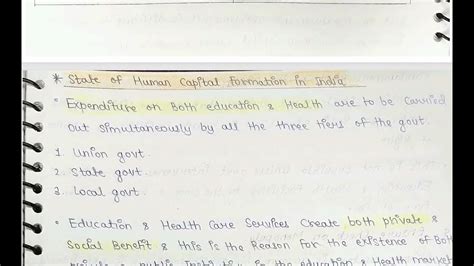 * State of Human Capital Formation in India
• Expenditure on Both education & Health are to be Carried
Out Simultaneously by all the three tiers of the govt.
1. Union govt.
2. State govt.
3. Local govt.
• Education & Health Care Services Create both private &
Social Benefit & this is the Reason for the existence of Both
private & public Insti in the education & Health market